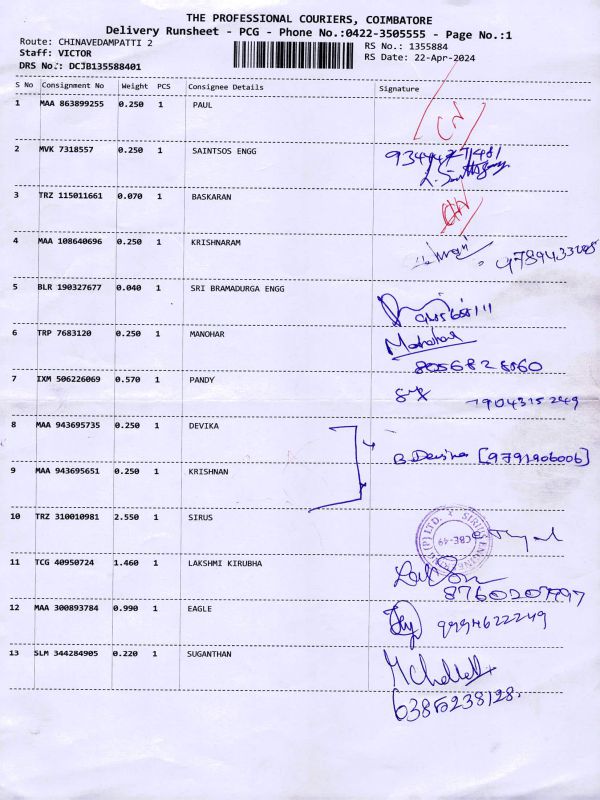 THE PROFESSIONAL COURIERS, COIMBATORE
Delivery Runsheet - PCG - Phone No.:0422-3505555 - Page No.:1
Route: CHINAVEDAMPATTI 2 RS No.: 1355884
Staff: VICTOR RS Date: 22-Apr-2024
DRS No.: DCJB135588401
S No Consignment No Weight PCS Consignee Details Signature
1 MAA 863899255 0.250 1 PAUL
2 MVK 7318557 0.250 1 SAINTSOS ENGG
3 TRZ 115011661 0.070 1 BASKARAN
4 MAA 108640696 0.250 1 KRISHNARAM
5 BLR 190327677 0.040 1 SRI BRAMADURGA ENGG
6 TRP 7683120 0.250 1 MANOHAR Manohar
8056828560
7 IXM 506226069 0.570 1 PANDY 7904315249
8 MAA 943695735 0.250 1 DEVIKA
B. Devika [9791906006]
9 MAA 943695651 0.250 1 KRISHNAN
10 TRZ 310010981 2.550 1 SIRUS CBE-49
11 TCG 40950724 1.460 1 LAKSHMI KIRUBHA
12 MAA 300893784 0.990 1 EAGLE 9994622249
13 SLM 344284905 0.220 1 SUGANTHAN
6385238128.